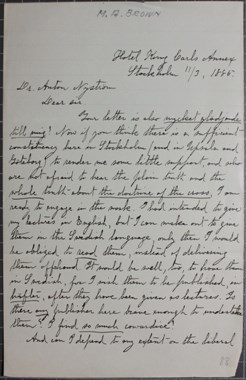 M. A. BROWN
Hotel Kung Carls Annex
Stockholm 11/3, 1888.
Dr. Anton Nystrom
Dear sir
Your letter is also mycket gladjande
till mig! Now if you think there is a sufficient
constituency here in Stockholm (and in Upsala and
Goteborg) to render me some little support, and who
are not afraid to hear the plain truth and the
whole truth about the doctrine of the cross, I am
ready to engage in this work. I had intended to give
my lectures in English, but I can make out to give
them in the Swedish language, only then I would
be obliged to read them, instead of delivering
them offhand. It would be well, too, to have them
in Swedish, for I wish them to be published, in
häften, after they have been given as lectures. Is
there any publisher here brave enough to undertake
them? I find so much cowardice!
And can I depend to any extent on the liberal